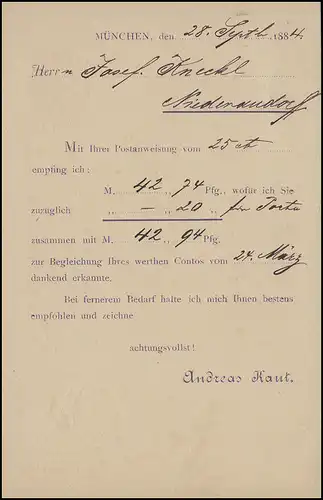 MÜNCHEN, den 28. Sept. 1884.
Herrn Josef Kneckl
Niederaudorf
Mit Ihrer Postanweisung vom 25 ct
empfing ich:
M. 42 „ 74 Pfg., wofür ich Sie
zuzüglich „ — „ 20 „ für Porto
zusammen mit M. 42 94 Pfg.
zur Begleichung Ihres werthen Contos vom 24. März
dankend erkannte.
Bei fernerem Bedarf halte ich mich Ihnen bestens
empfohlen und zeichne
achtungsvollst!
Andreas Kaut.